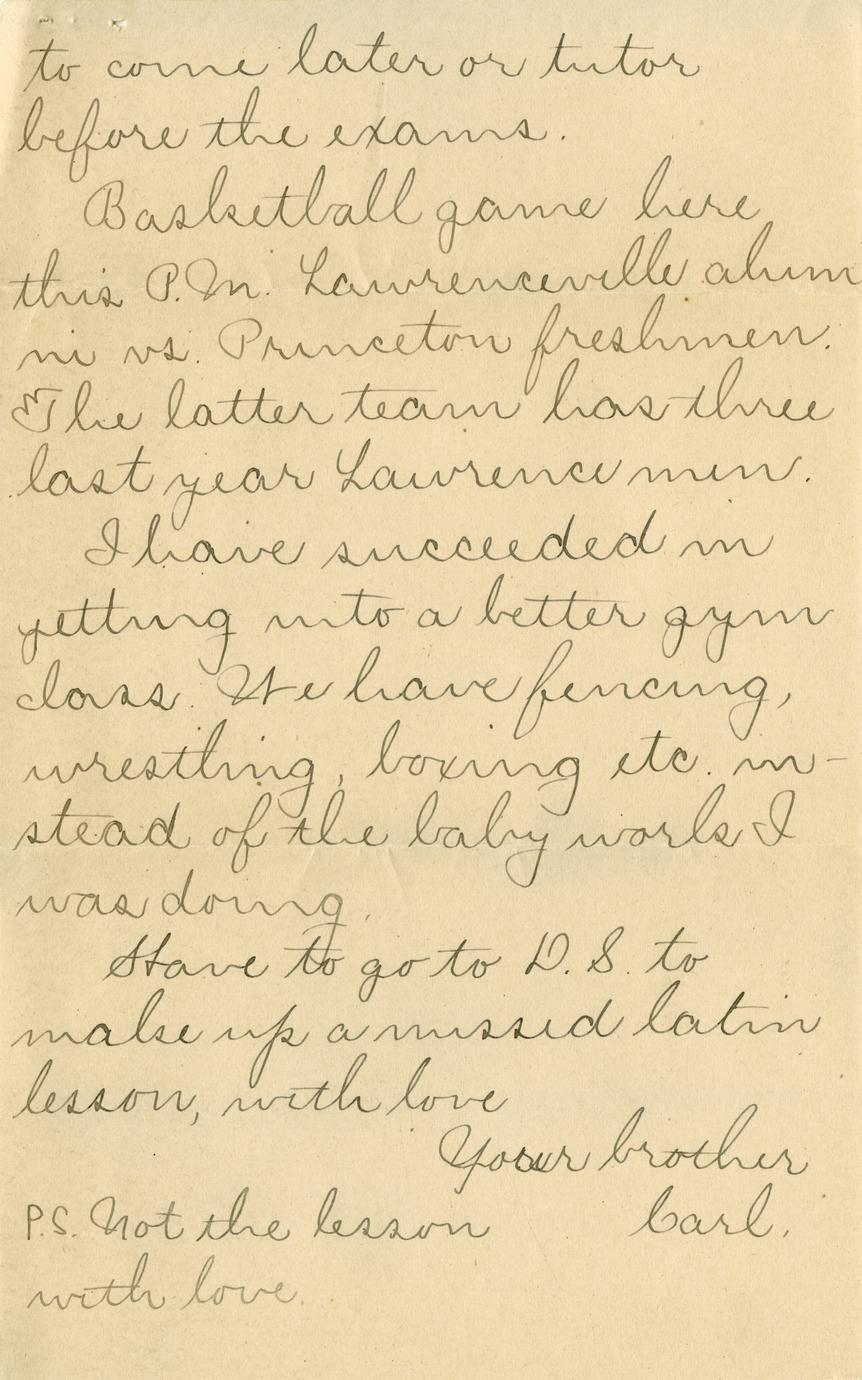 to come later or tutor
before the exams.
Basketball game here
this P.M. Lawrenceville alum
ni vs. Princeton freshmen.
The latter team has three
last year Lawrence men.
I have succeeded in
getting into a better gym
class. We have fencing,
wrestling, boxing etc. in-
stead of the baby work I
was doing.
Have to go to D.S. to
make up a missed latin
lesson, with love
Your brother
Carl.
P.S. Not the lesson
with love.